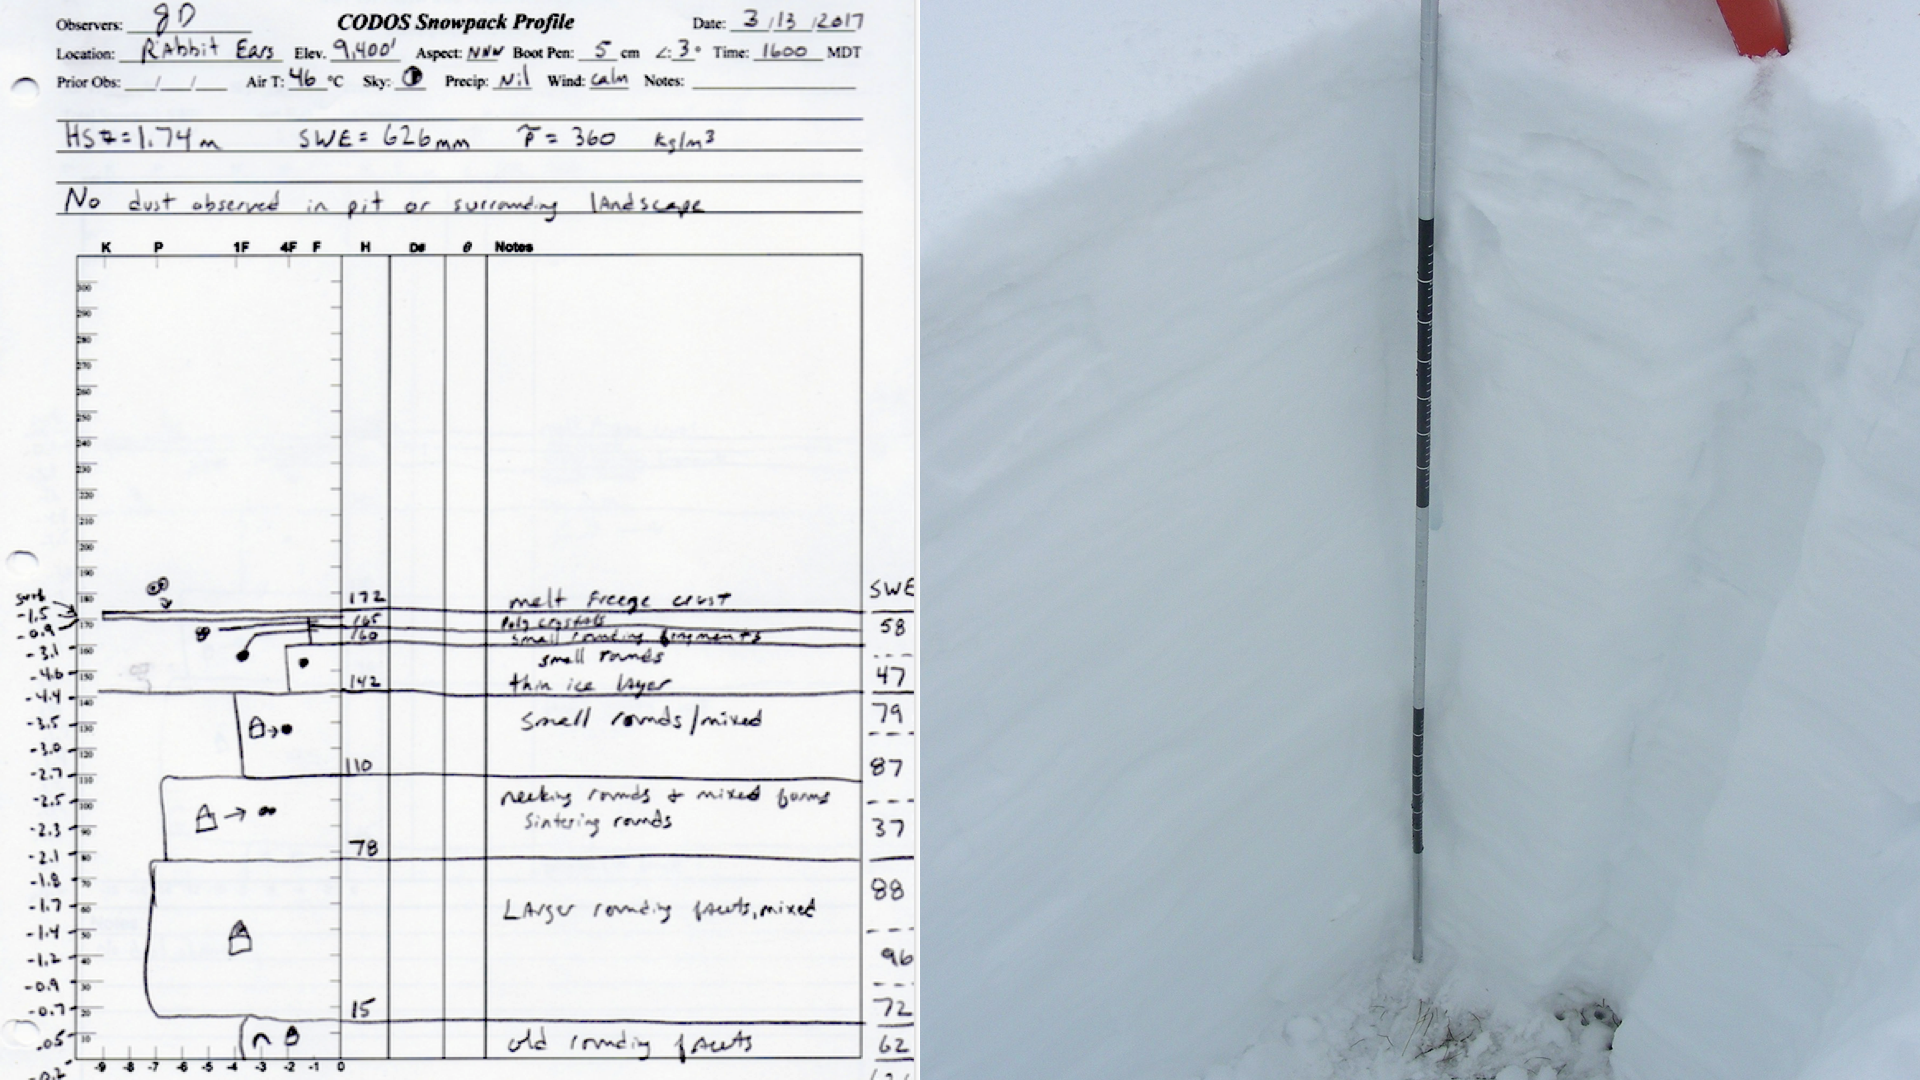 Observers: JD CODOS Snowpack Profile Date: 3/13/2017
Location: RAbbit Ears Elev. 9,400' Aspect: NNW Boot Pen: 5 cm ∠: 3° Time: 1600 MDT
Prior Obs: / / Air T: 46 °C Sky: Precip: Nil Wind: calm Notes:
HS = 1.74 m SWE = 626 mm ρ̄ = 360 kg/m³
No dust observed in pit or surrounding lAndscape
K P 1F 4F F H D# θ Notes
300
290
280
270
260
250
240
230
220
210
200
190
180 172 melt freeze crust SWE
surf
-1.5
170 165 Poly crystals 58
-0.9
160 small rounding fragments
-3.1 160 small rounds
-4.6 150 142 thin ice layer 47
-4.4 140 79
-3.5 130 small rounds/mixed
-3.0 120 110 87
-2.7 110
-2.5 100 necking rounds & mixed forms
-2.3 90 sintering rounds 37
-2.1 80 78
-1.8 70 88
-1.7 60 LArger rounding facets, mixed
-1.4 50
-1.2 40 96
-0.9 30
-0.7 20 15 72
-.05 10 old rounding facets 62
-0.2
-9 -8 -7 -6 -5 -4 -3 -2 -1 0